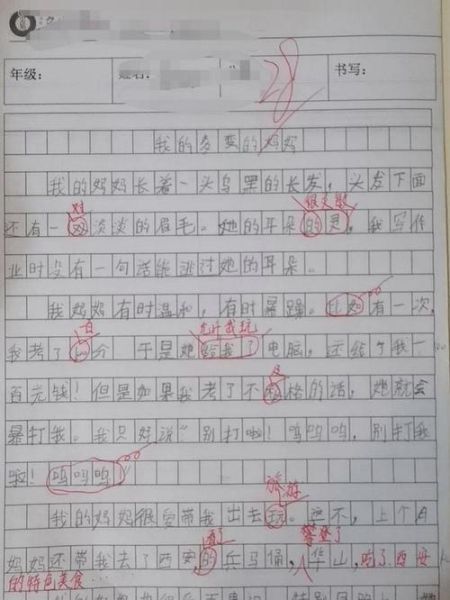 年级：
姓名：
28
书写：
我的多变的妈妈
我的妈妈长着一头乌黑的长发，头发下面
对 很灵敏
还有一双淡淡的眉毛。她的耳朵的灵，我写作
业时没有一句话能逃过她的耳朵。
我妈妈有时温和，有时暴躁。比如有一次，
百 允许我玩
我考了 分 于是她给我了电脑，还给了我一
百元钱！但是如果我考了不 格的话，她就会
暴打我。我只好说“别打啦！呜呜呜，别打我
啦！呜呜呜”
旅游
我的妈妈很爱带我出去玩。这不，上个月
登了
妈妈还带我去了西安的兵马俑，华山，吃了西安
的特色美食